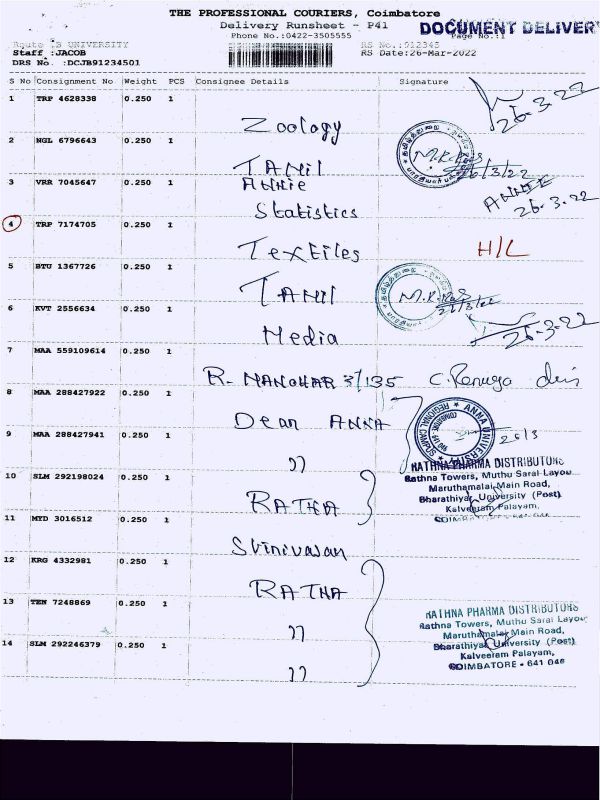 THE PROFESSIONAL COURIERS, Coimbatore
Delivery Runsheet - P41
DOCUMENT DELIVER
Phone No.:0422-3505555
Page No.:1
Route :B UNIVERSITY
RS No.:912345
Staff :JACOB
RS Date:26-Mar-2022
DRS No. :DCJB91234501
S No Consignment No Weight PCS Consignee Details Signature
1 TRP 4628338 0.250 1 Zoology 26-3-22
2 NGL 6796643 0.250 1 TAMIL 26/3/22
3 VRR 7045647 0.250 1 Annie Statistics ANNIE 26.3.22
4 TRP 7174705 0.250 1 Textiles H/L
5 BTU 1367726 0.250 1 TAMIL 26/3/22
6 KVT 2556634 0.250 1 Media 26-3-22
7 MAA 559109614 0.250 1 R. MANOHAR 3/135 C. Renuga devi
8 MAA 288427922 0.250 1 Dean ANNA
ANNA UNIVERSITY REGIONAL CAMPUS
26/3
9 MAA 288427941 0.250 1 "
10 SLM 292198024 0.250 1 RATHA
RATHNA PHARMA DISTRIBUTORS
Rathna Towers, Muthu Saral Layou
Maruthamalai Main Road,
Bharathiyar University (Post)
Kalveeram Palayam,
11 MYD 3016512 0.250 1 Srinivasan
12 KRG 4332981 0.250 1 RATHA
13 TEN 7248869 0.250 1 "
14 SLM 292246379 0.250 1 "
RATHNA PHARMA DISTRIBUTORS
Rathna Towers, Muthu Sarai Layou
Maruthamalai Main Road,
Bharathiyar University (Post)
Kalveeram Palayam,
COIMBATORE - 641 046